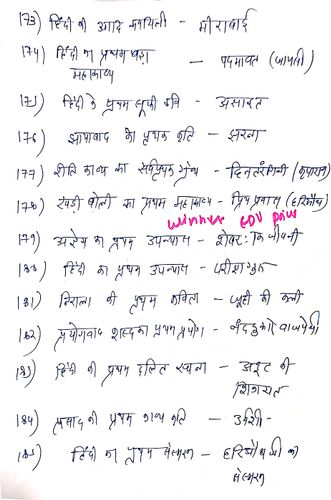 173) हिंदी की आदि कवयित्री - मीराबाई
174) हिंदी का प्रथम बड़ा
महाकाव्य - पदमावत (जायसी)
175) हिंदी के प्रथम सूफी कवि - असाइत
176) छायावाद की प्रथम कृति - झरना
177) रीति काव्य का सर्वप्रथम ग्रंथ - हिततरंगिनी (कृपाराम)
178) खड़ी बोली का प्रथम महाकाव्य - प्रिय प्रवास (हरिऔध)
winner
179) अज्ञेय का प्रथम उपन्यास - शेखर : एक जीवनी
180) हिंदी का प्रथम उपन्यास - परीक्षा गुरु
181) निराला की प्रथम कविता - जूही की कली
182) प्रयोगवाद शब्द का प्रथम प्रयोग - नंददुलारे वाजपेयी
183) हिंदी की प्रथम दलित रचना - अछूत की
शिकायत
184) प्रसाद की प्रथम काव्य कृति - उर्वशी
185) हिंदी का प्रथम संस्मरण - हरिऔध जी का
संस्मरण